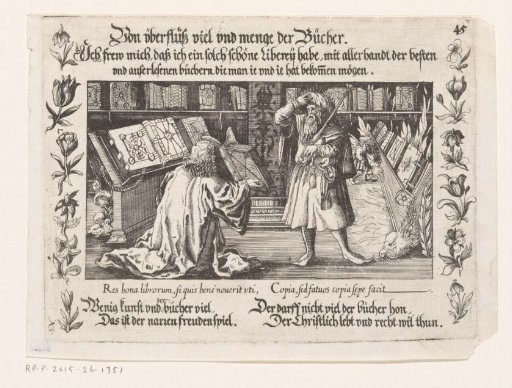 45
Von überflüß viel vnd menge der Bücher.
Ich frew mich, daß ich ein solch schöne Liberey habe, mit allerhandt der besten
vnd außerlesenen büchern, die man ie vnd ie hat bekommen mögen.
Res bona librorum, si quis bene nouerit vti, Copia, sed fatuos copia sepe facit
Wenig kunst vnd der bücher viel, Der darff nicht viel der bücher hon,
Das ist der narren freudenspiel. Der Christlich lebt vnd recht wil thun.
RP-P-2015-26-1351